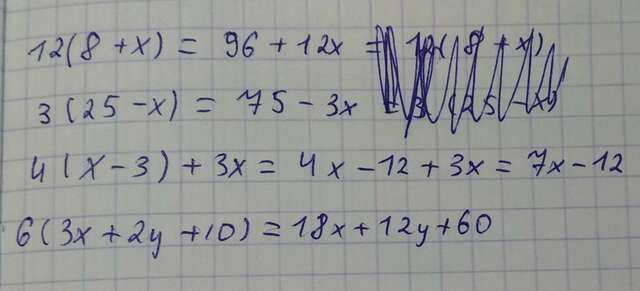 12(8+x) = 96+12x =
3(25-x) = 75-3x
4(x-3)+3x = 4x-12+3x = 7x-12
6(3x+2y+10)=18x+12y+60